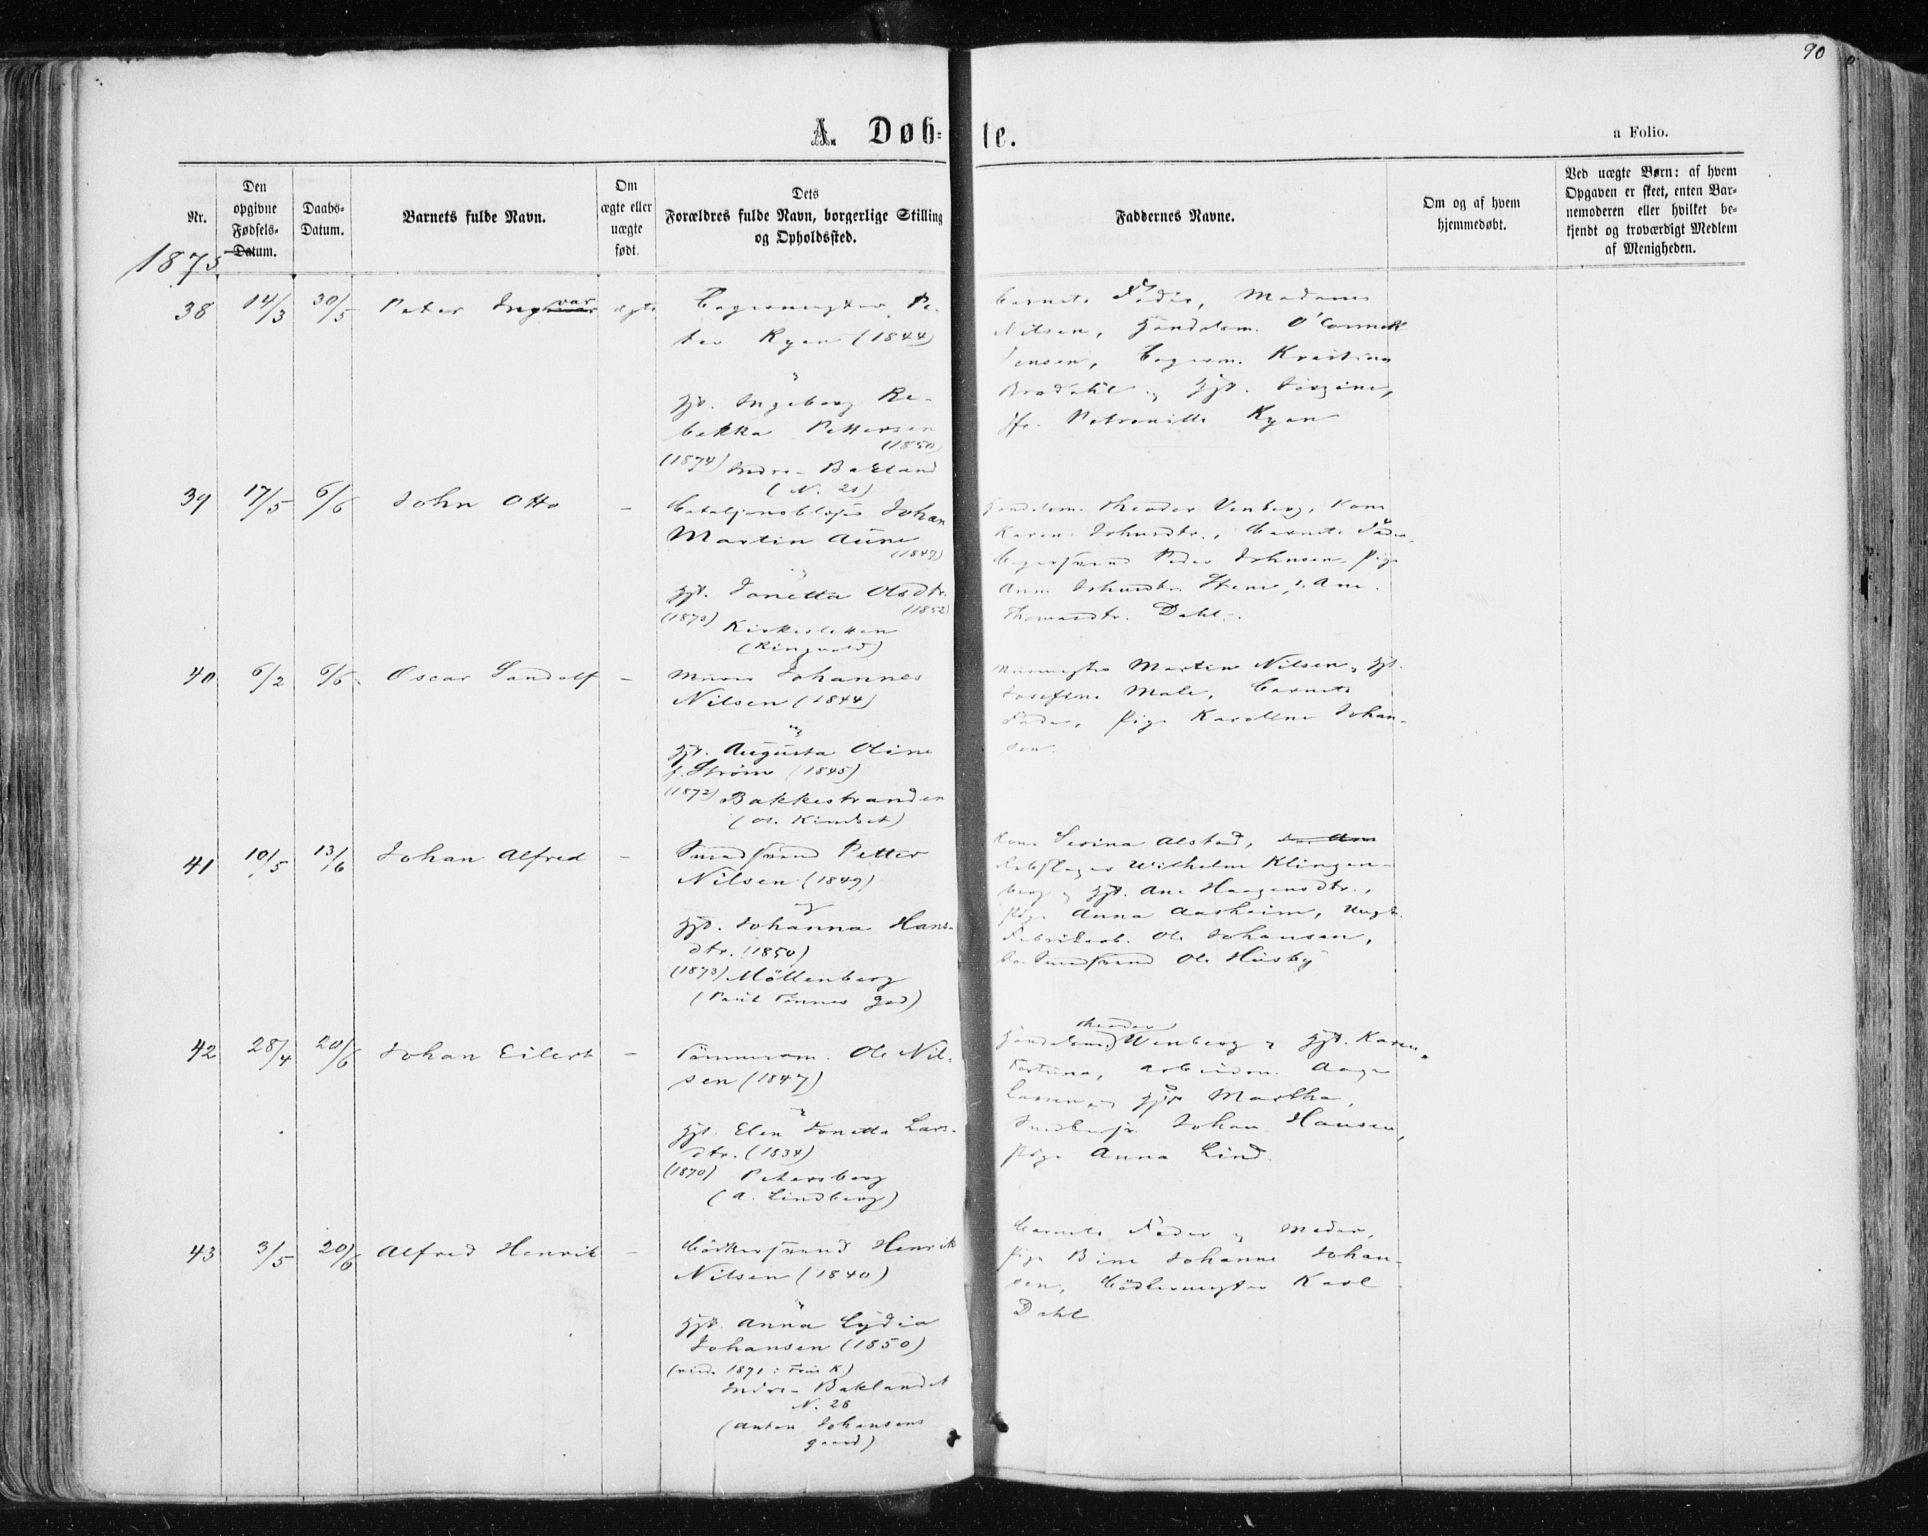 90
A. Døb-
te.
a Folio.
Nr.
Den
opgivne
Fødsels-
Datum.
Daabs-
Datum.
Barnets fulde Navn.
Om
ægte eller
uægte
født.
Dets
Forældres fulde Navn, borgerlige Stilling
og Opholdssted.
Faddernes Navne.
Om og af hvem
hjemmedøbt.
Ved uægte Børn: af hvem
Opgaven er skeet, enten Bar-
nemoderen eller hvilket be-
kjendt og troværdigt Medlem
af Menigheden.
1875
38 14/3 30/5 Peter Ingvar ægte
Bagermester Pe-
ter Ryan (1844)
Gjt. Ingeborg Re-
bekka Pettersen
(1850)
(1874) Indre-Bakland
(N. 21)
Barnets Fader, Madame
Nilsen, Handelsm. O'Connok
Jensen, Bagerm. Kristian
Bradahl og Hst. Jørgine,
Jfr. Petronille Ryan
39 17/5 6/6 John Otto -
Johan
Martin Aune
(1847)
Gjt. Jonetta Olsdtr.
(1852)
(1873) Kirkesletten
(Ringvold)
Handelsm. Theodor Venberg, Kone
Karen Johnsdtr., Barnets Fader,
Bagersvend Peder Johnsen, Pige
Ann Johnsdtr. Stene, Ane
Thomasdtr. Dahl.
40 6/2 6/6 Oscar Sandolf -
Murer Johannes
Nilsen (1844)
Gjt. Augusta Oline
f. Strøm (1845)
(1872) Bakkestranden
(O. Kindset)
Murmester Martin Nilsen, Hst.
Josefine Male, Barnets
Fader, Pige Karoline Johan-
sen
41 10/5 13/6 Johan Alfred -
Smedsvend Petter
Nilsen (1849)
og
Gjt. Johanna Hans-
dtr. (1850)
(1873) Møllenberg
(Paul Tønnes Gød)
Kone Serina Alstad,
Rebslager Wilhelm Klingen-
berg og Hst. Ane Haagensdtr.,
Pige Anna Aasheim, Ungk.
Fabrikarb. Ole Johansen,
Do. Smedsvend Ole Husby
42 28/4 20/6 Johan Eilert -
Tømmerm. Ole Nil-
sen (1847)
Gjt. Elen Jonetta Lars-
dtr. (1834)
(1870) Petersberg
(A. Lindberg)
Theodor
Handelsmd. Wenberg og Hst. Karen
Fortuna, Arbeidsm. Aage
Larsen og Hst. Martha,
Johan Hansen,
Pige Anna Lind.
43 3/5 20/6 Alfred Henrik -
Bødkersvend Henrik
Nilsen (1840)
Gjt. Anna Lydia
Johansen (1850)
(viede 1871: Frue K.)
Indre-Baklandet
N. 28
(Anton Johansens
gaard)
Barnets Fader og Moder,
Pige Bine Johanne Johan-
sen, Bødkermester Karl
Dahl